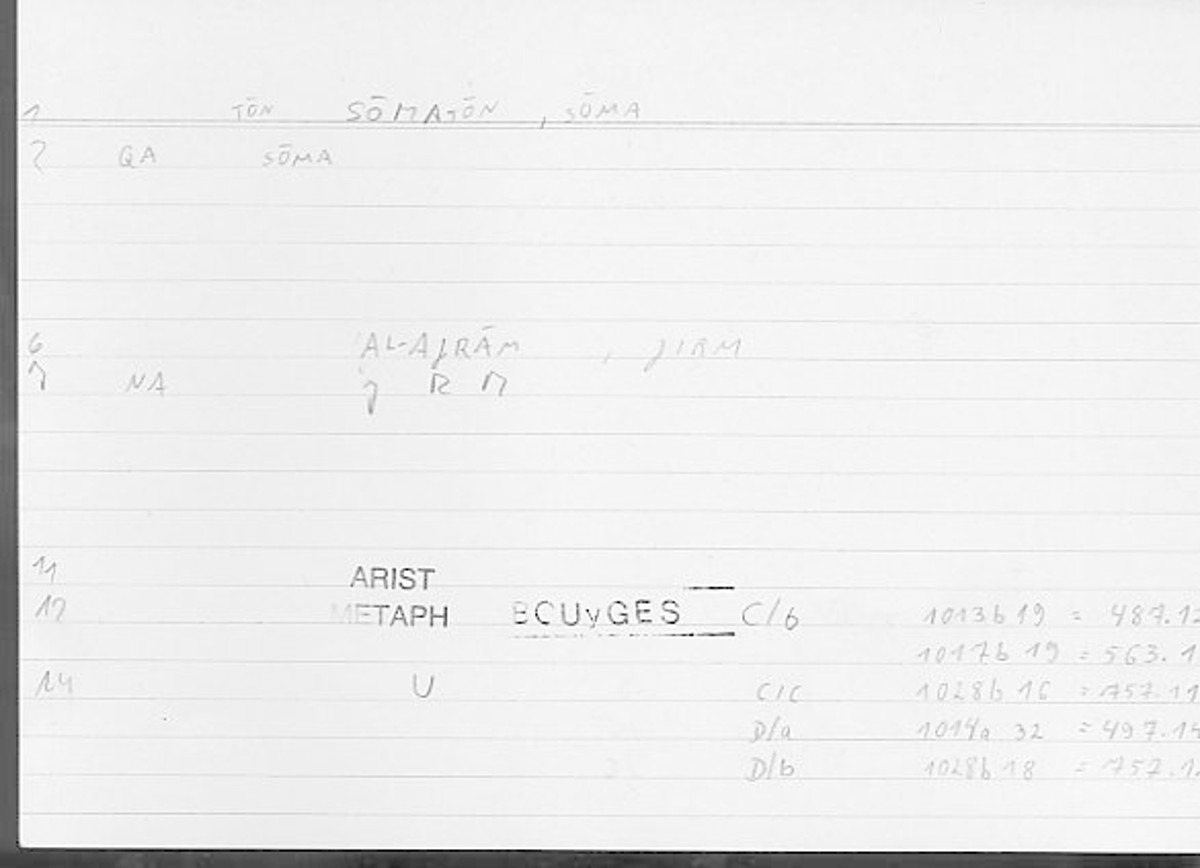 1 TŌN SŌMATŌN , SŌMA
2 QA SŌMA
6 AL-AJRĀM , JIRM
7 NA J R M
11 ARIST
12 METAPH BOUYGES C/b 1013b 19 = 487.12
1017b 19 = 563.1
14 U C/c 1028b 16 = 757.11
D/a 1014a 32 = 497.14
D/b 1028b 18 = 757.1